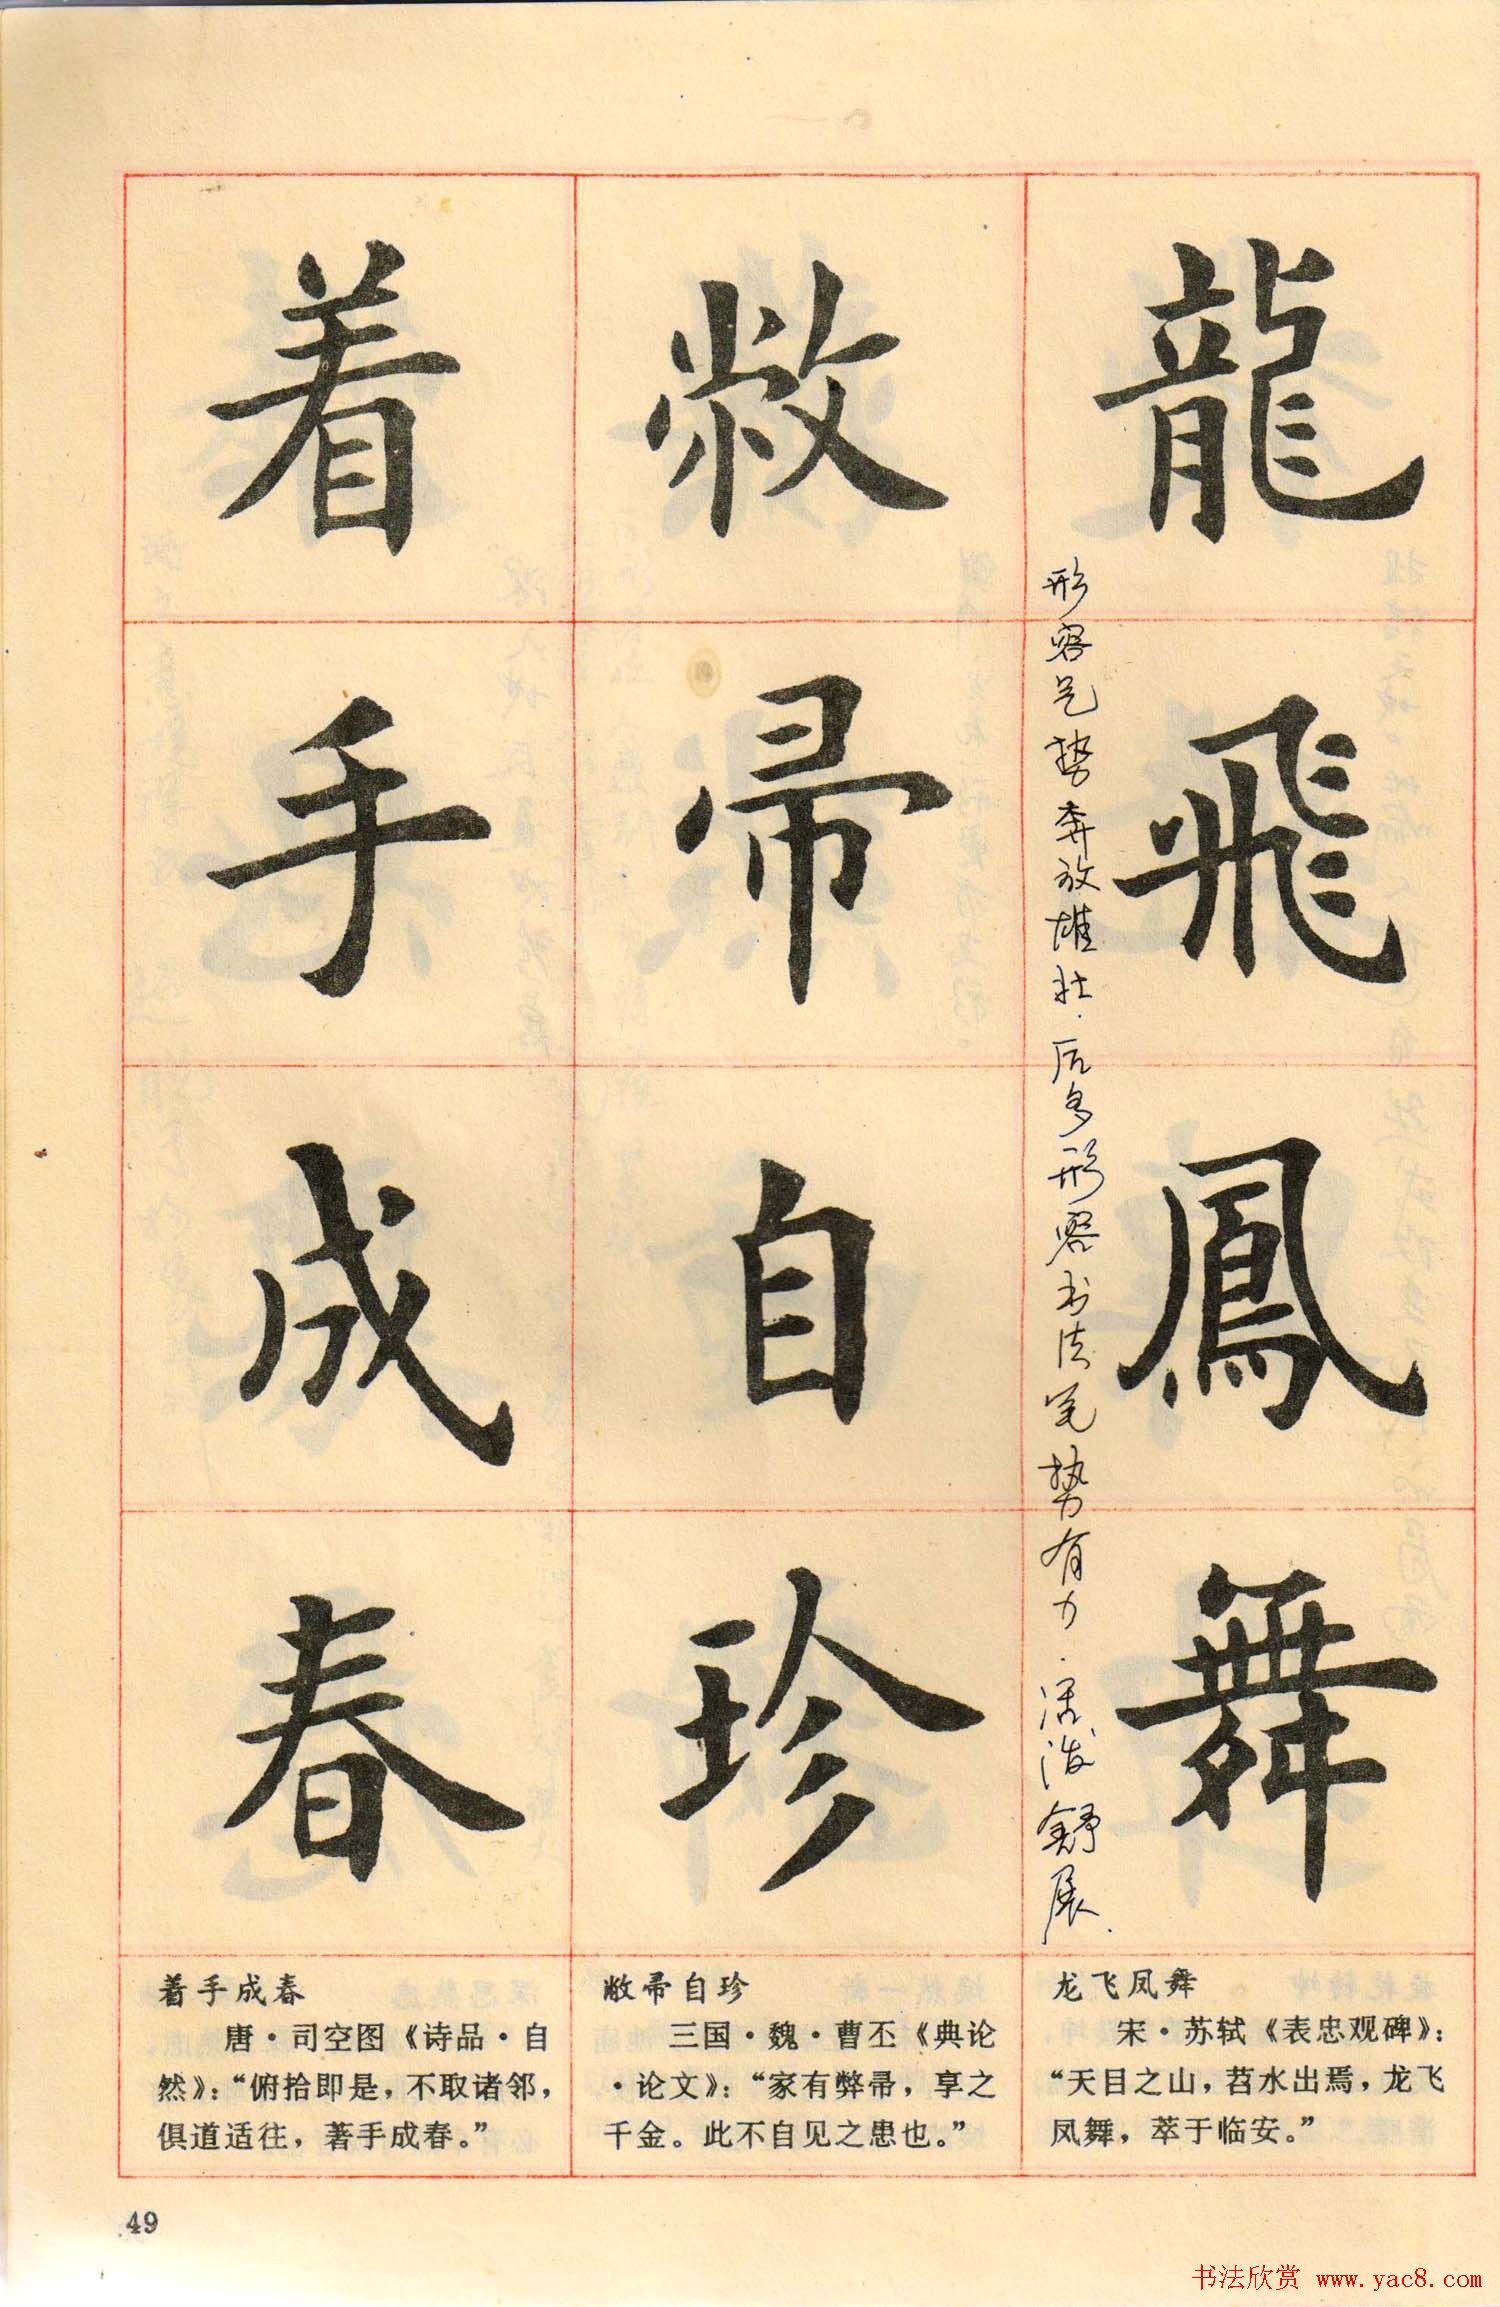 龍飛鳳舞
形容气势奔放雄壮.后多形容书法笔势有力.活泼舒展.
敝帚自珍
着手成春
龙飞凤舞
宋·苏轼《表忠观碑》：
“天目之山，苕水出焉，龙飞
凤舞，萃于临安。”
敝帚自珍
三国·魏·曹丕《典论
·论文》：“家有弊帚，享之
千金。此不自见之患也。”
着手成春
唐·司空图《诗品·自
然》：“俯拾即是，不取诸邻，
俱道适往，著手成春。”
49
书法欣赏 www.yac8.com